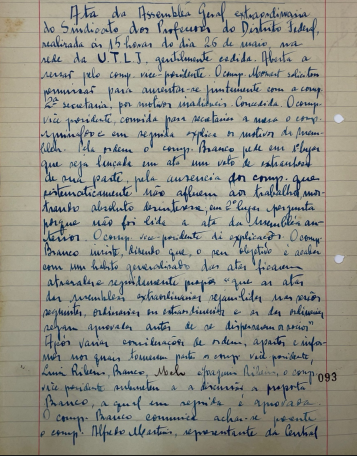 Ata da Assembléa Geral extraordinaria
do Sindicato dos Professores do Districto Federal,
realizada ás 15 horas do dia 26 de maio, na
sede da U.T.L.J. gentilmente cedida. Aberta a
sessão pelo comp. vice-presidente. O comp. solicitou
permissão para ausentar-se juntamente com a comp.
2ª secretaria, por motivos inadiaveis. Concedida. O comp.
vice presidente, convida para secretariar a mesa o comp.
e em seguida explica os motivos da assem-
bléa. Pela ordem o comp. Branco pede em 1º lugar
que seja lançado em ata um voto de extranhesa
de sua parte, pela ausencia dos comp. que
sistematicamente não afluem aos trabalhos, mos-
trando absoluto desinteresse, em 2º lugar pergunta
porque não foi lida a ata da assembléa an-
terior. O comp. vice-presidente dá explicações. O comp.
Branco insiste, dizendo que, o seu objetivo é acabar
com um habito generalisado das atas ficarem
atrasadas e seguidamente propõe "que as atas
das assembléas extraordinarias sejam lidas nas sessões
seguintes, ordinarias ou extraordinarias e as das ordinarias
sejam aprovadas antes de se dispersarem os socios"
Após varias considerações de ordem, apartes e infor-
mes nos quais tomaram parte o comp. vice presidente,
Luiz Ribeiro, Branco, Ribeiro, o comp.
vice presidente submeteu a a discussão a proposta
093
Branco, a qual em seguida é aprovada.
O comp. Branco comunica achar-se presente
o comp. Alfredo Martins, representante da Central